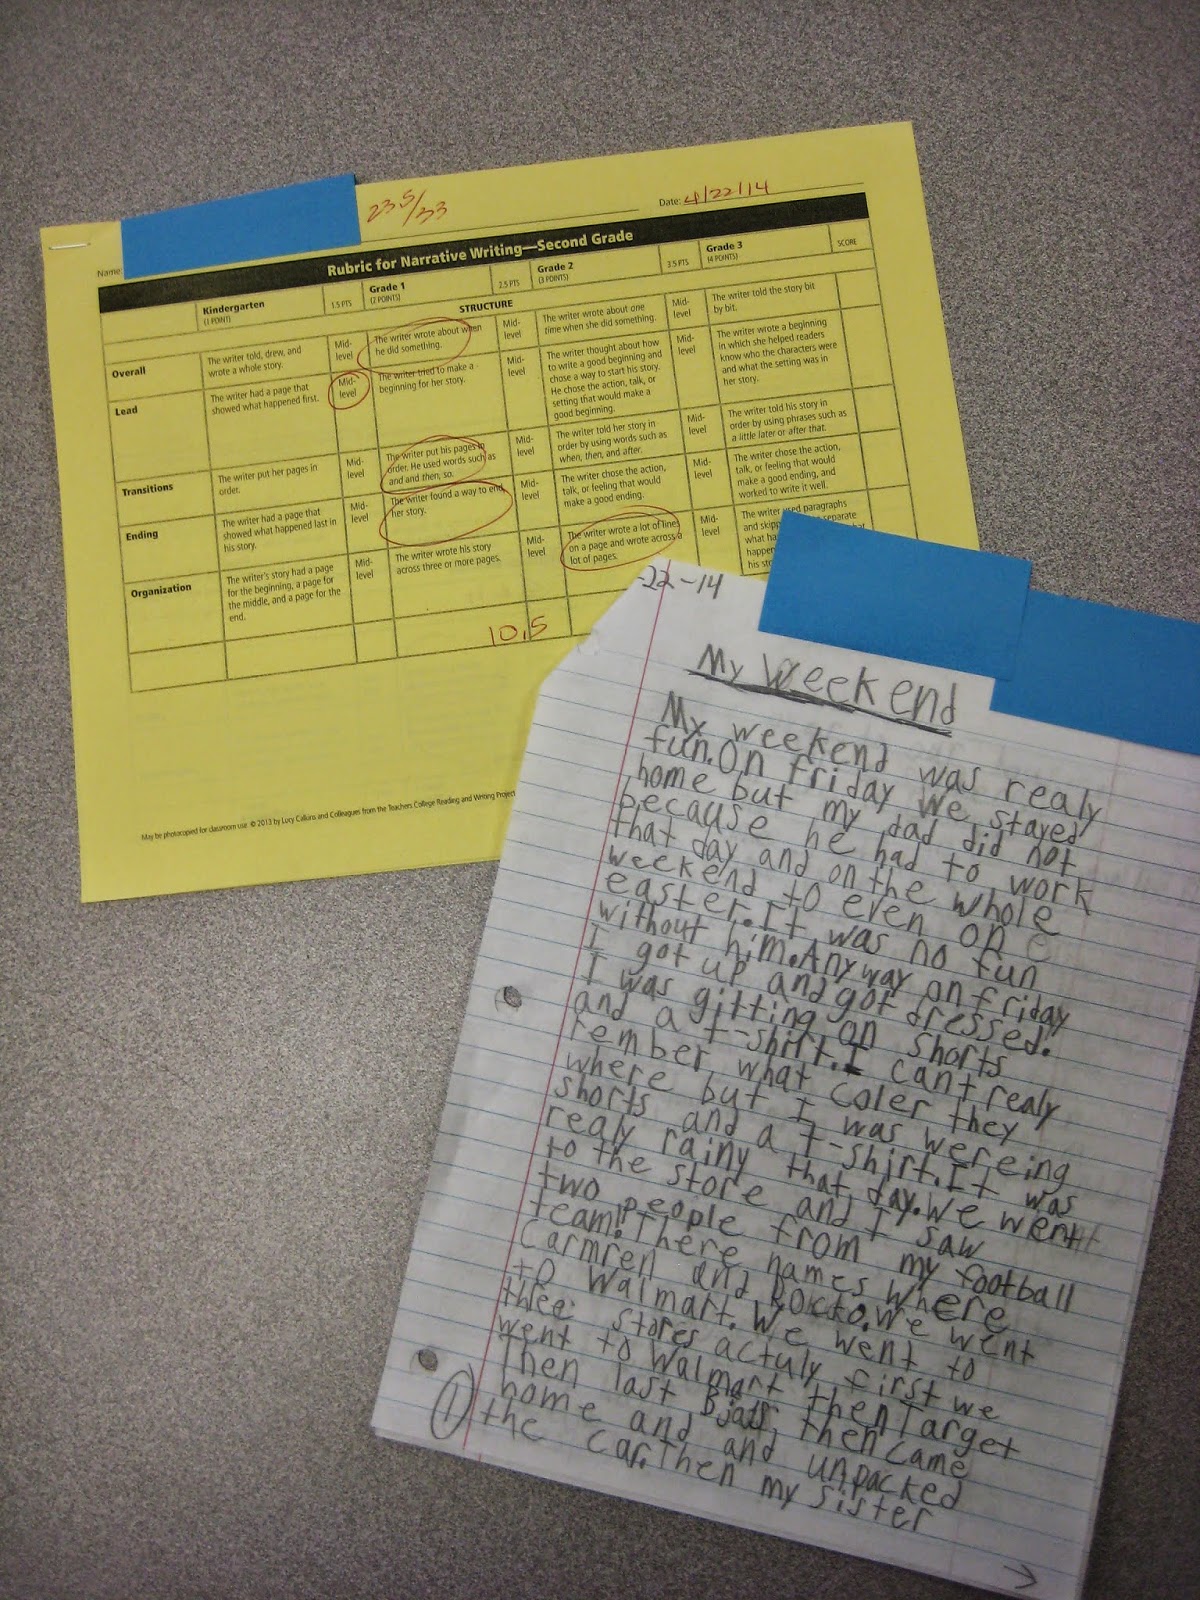 23.5/33
Name:
Date: 4/22/14
Rubric for Narrative Writing—Second Grade
Kindergarten (1 POINT) 1.5 PTS Grade 1 (2 POINTS) 2.5 PTS Grade 2 (3 POINTS) 3.5 PTS Grade 3 (4 POINTS) SCORE
STRUCTURE
Overall
The writer told, drew, and
wrote a whole story.
Mid-
level
The writer wrote about when
he did something.
Mid-
level
The writer wrote about one
time when she did something.
Mid-
level
The writer told the story bit
by bit.
Lead
The writer had a page that
showed what happened first.
Mid-
level
The writer tried to make a
beginning for her story.
Mid-
level
The writer thought about how
to write a good beginning and
chose a way to start his story.
He chose the action, talk, or
setting that would make a
good beginning.
Mid-
level
The writer wrote a beginning
in which she helped readers
know who the characters were
and what the setting was in
her story.
Transitions
The writer put her pages in
order.
Mid-
level
The writer put his pages in
order. He used words such as
and and then, so.
Mid-
level
The writer told her story in
order by using words such as
when, then, and after.
Mid-
level
The writer told his story in
order by using phrases such as
a little later or after that.
Ending
The writer had a page that
showed what happened last in
his story.
Mid-
level
The writer found a way to end
her story.
Mid-
level
The writer chose the action,
talk, or feeling that would
make a good ending.
Mid-
level
The writer chose the action,
talk, or feeling that would
make a good ending, and
worked to write it well.
Organization
The writer's story had a page
for the beginning, a page for
the middle, and a page for the
end.
Mid-
level
The writer wrote his story
across three or more pages.
Mid-
level
The writer wrote a lot of lines
on a page and wrote across a
lot of pages.
Mid-
level
The writer used paragraphs
and separate
what
10.5
May be photocopied for classroom use. © 2013 by Lucy Calkins and Colleagues from the Teachers College Reading and Writing Project
-22-14
My Weekend
My weekend was realy
fun.On friday we stayed
home but my dad did not
because he had to work
that day and on the whole
weekend to even on
easter.It was no fun
without him.Anyway on friday
I got up and got dressed.
I was gitting on shorts
and a t-shirt.I cant realy
rember what coler they
where but I was wereing
shorts and a t-shirt.It was
realy rainy that day.We went
to the store and I saw
two people from my football
team!There names where
Carmren and .We went
to Walmart.We went to
three stores actuly first we
went to Walmart then Target
Then last , then came
home and and unpacked
the car.Then my sister
1
→